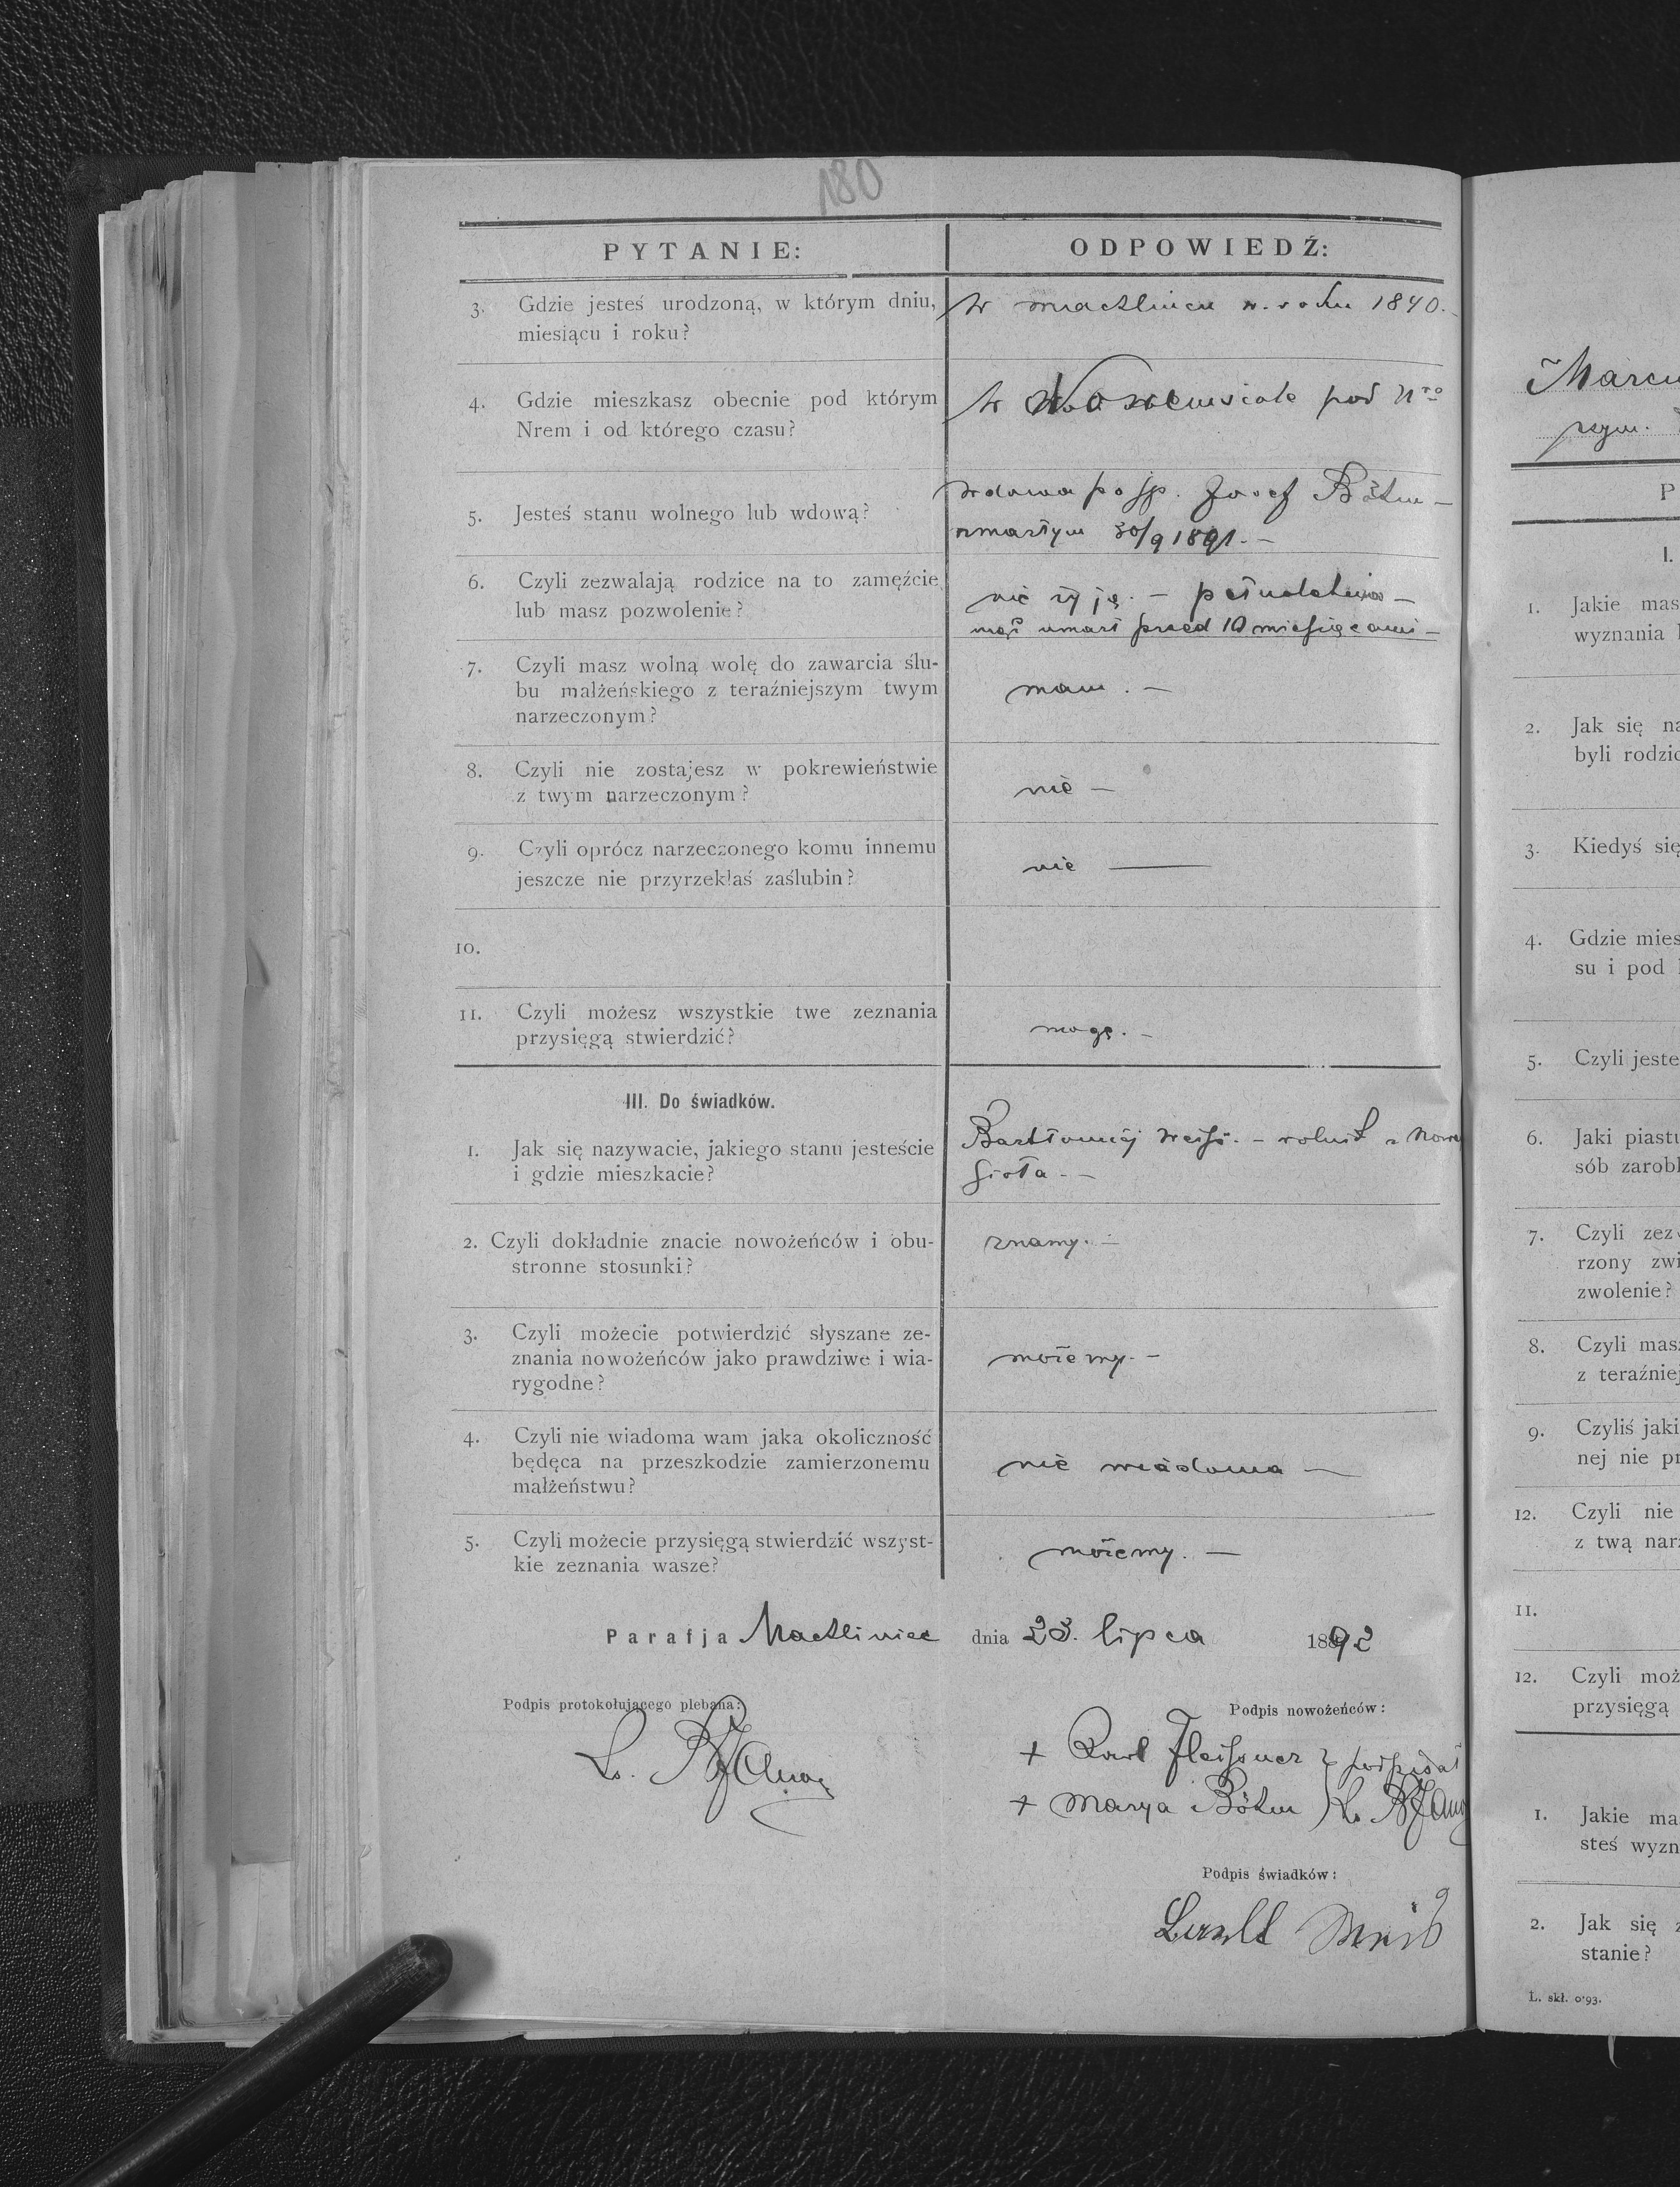 180
PYTANIE:
ODPOWIEDŹ:
3. Gdzie jesteś urodzoną, w którym dniu,
miesiącu i roku?
w w. roku 1840.
4. Gdzie mieszkasz obecnie pod którym
Nrem i od którego czasu?
w pod Nro
5. Jesteś stanu wolnego lub wdową?
wdowa po śp. Josef Böhm —
zmarłym 30/9 1891. —
6. Czyli zezwalają rodzice na to zamęźcie
lub masz pozwolenie?
nie żyją. — pełnoletnia —
mąż umarł przed 10 miesiącami —
7. Czyli masz wolną wolę do zawarcia ślu-
bu małżeńskiego z teraźniejszym twym
narzeczonym?
mam. —
8. Czyli nie zostajesz w pokrewieństwie
z twym narzeczonym?
nie —
9. Czyli oprócz narzeczonego komu innemu
jeszcze nie przyrzekłaś zaślubin?
nie —
10.
11. Czyli możesz wszystkie twe zeznania
przysięgą stwierdzić?
mogę. —
III. Do świadków.
1. Jak się nazywacie, jakiego stanu jesteście
i gdzie mieszkacie?
Bartłomiej Weiss. — rolnik z Nowe
Sioła. —
2. Czyli dokładnie znacie nowożeńców i obu-
stronne stosunki?
znamy. —
3. Czyli możecie potwierdzić słyszane ze-
znania nowożeńców jako prawdziwe i wia-
rygodne?
możemy. —
4. Czyli nie wiadoma wam jaka okoliczność
będęca na przeszkodzie zamierzonemu
małżeństwu?
nie wiadoma —
5. Czyli możecie przysięgą stwierdzić wszyst-
kie zeznania wasze?
możemy. —
Parafja Machliniec dnia 23. lipca 1892
Podpis protokołującego plebana:
Podpis nowożeńców:
+ Karl Fleissner podpisał
+ Marya Böhm
Podpis świadków:
Marcin
P
I.
1. Jakie mas
wyznania
2. Jak się na
byli rodzic
3. Kiedyś się
4. Gdzie mies
su i pod
5. Czyli jeste
6. Jaki piastu
sób zarobk
7. Czyli zez
rzony zwi
zwolenie?
8. Czyli masz
z teraźniej
9. Czyliś jaki
nej nie pr
12. Czyli nie
z twą narz
11.
12. Czyli moż
przysięgą
1. Jakie ma
steś wyzn
2. Jak się z
stanie?
L. skł. 0·93.